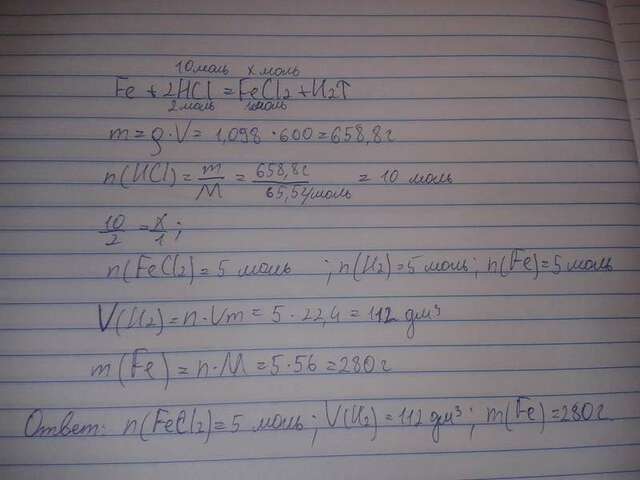 10 моль x моль
Fe + 2HCl = FeCl2 + H2↑
2 моль 1 моль
m = ρ·V = 1,098 · 600 = 658,8 г
n(HCl) = m/M = 658,8 г/65,5 г/моль = 10 моль
10/2 = x/1;
n(FeCl2) = 5 моль ; n(H2) = 5 моль; n(Fe) = 5 моль
V(H2) = n·Vm = 5 · 22,4 = 112 дм³
m(Fe) = n·M = 5·56 = 280 г
Ответ: n(FeCl2) = 5 моль; V(H2) = 112 дм³; m(Fe) = 280 г